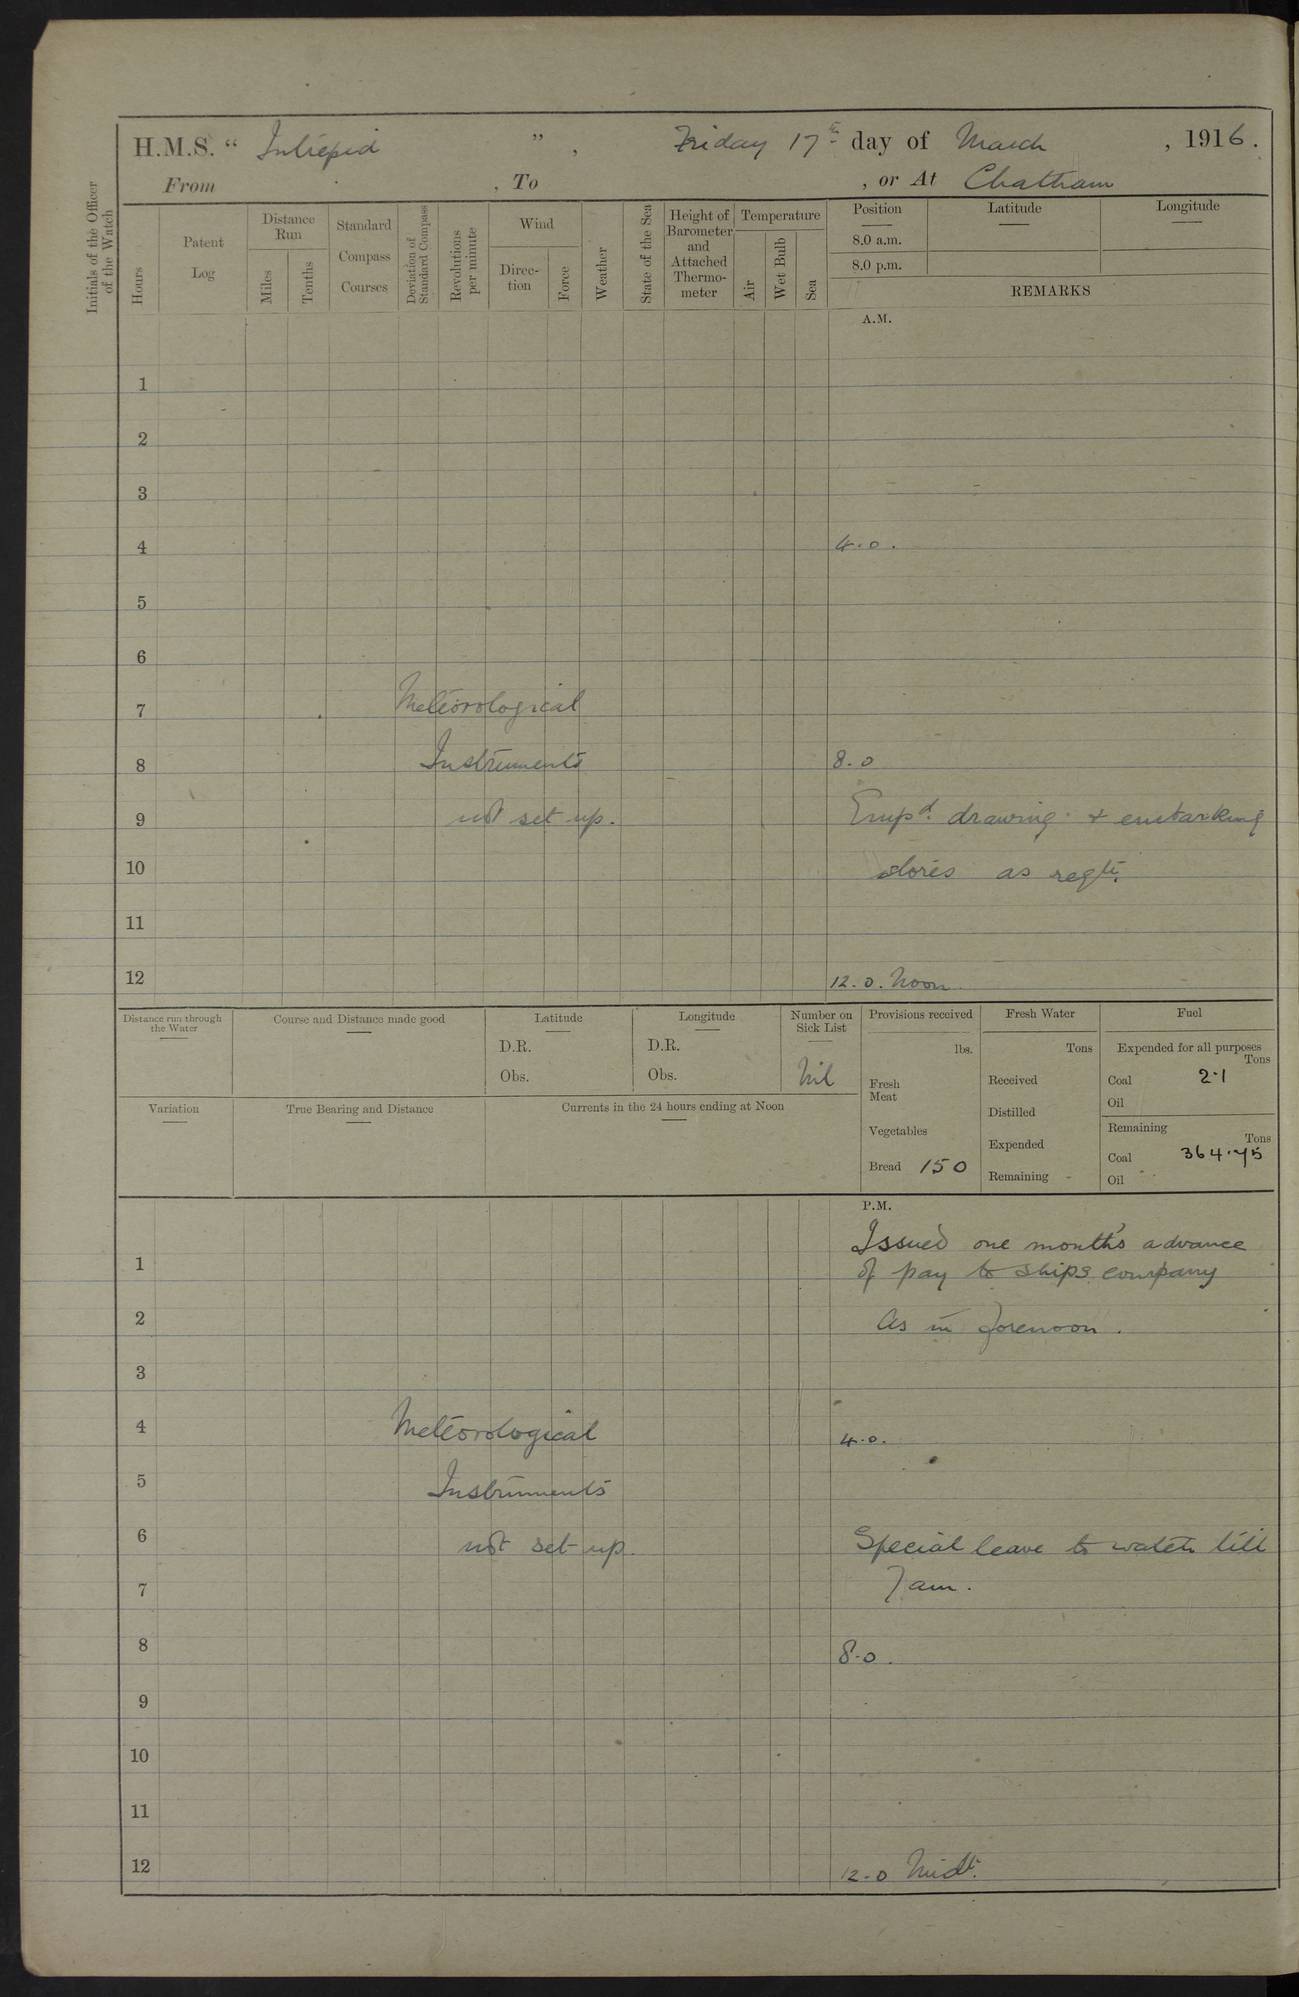 H.M.S. “ Intrepid ” , Friday 17th day of March , 1916.
From , To , or At Chatham
Initials of the Officer of the Watch
Hours
Patent Log
Distance Run
Miles
Tenths
Standard Compass Courses
Deviation of Standard Compass
Revolutions per minute
Wind
Direc-tion
Force
Weather
State of the Sea
Height of Barometer and Attached Thermo-meter
Temperature
Air
Wet Bulb
Sea
Position Latitude Longitude
8.0 a.m.
8.0 p.m.
REMARKS
A.M.
1
2
3
4 4.0.
5
6
7 Meteorological
8 Instruments 8.0
9 not set up. Empd. drawing & embarking
10 stores as reqte.
11
12 12.0. Noon
Distance run through the Water
Course and Distance made good
Latitude
D.R.
Obs.
Longitude
D.R.
Obs.
Number on Sick List
Nil
Provisions received
lbs.
Fresh Meat
Vegetables
Bread 150
Fresh Water
Tons
Received
Distilled
Expended
Remaining
Fuel
Expended for all purposes
Tons
Coal 2.1
Oil
Remaining
Tons
Coal 364.75
Oil
Variation
True Bearing and Distance
Currents in the 24 hours ending at Noon
P.M.
Issued one month's advance
1 of pay to ships company
2 As in forenoon.
3
4 Meteorological 4.0.
5 Instruments
6 not set up. Special leave to watch till
7 7 am.
8 8.0.
9
10
11
12 12.0 Midt.